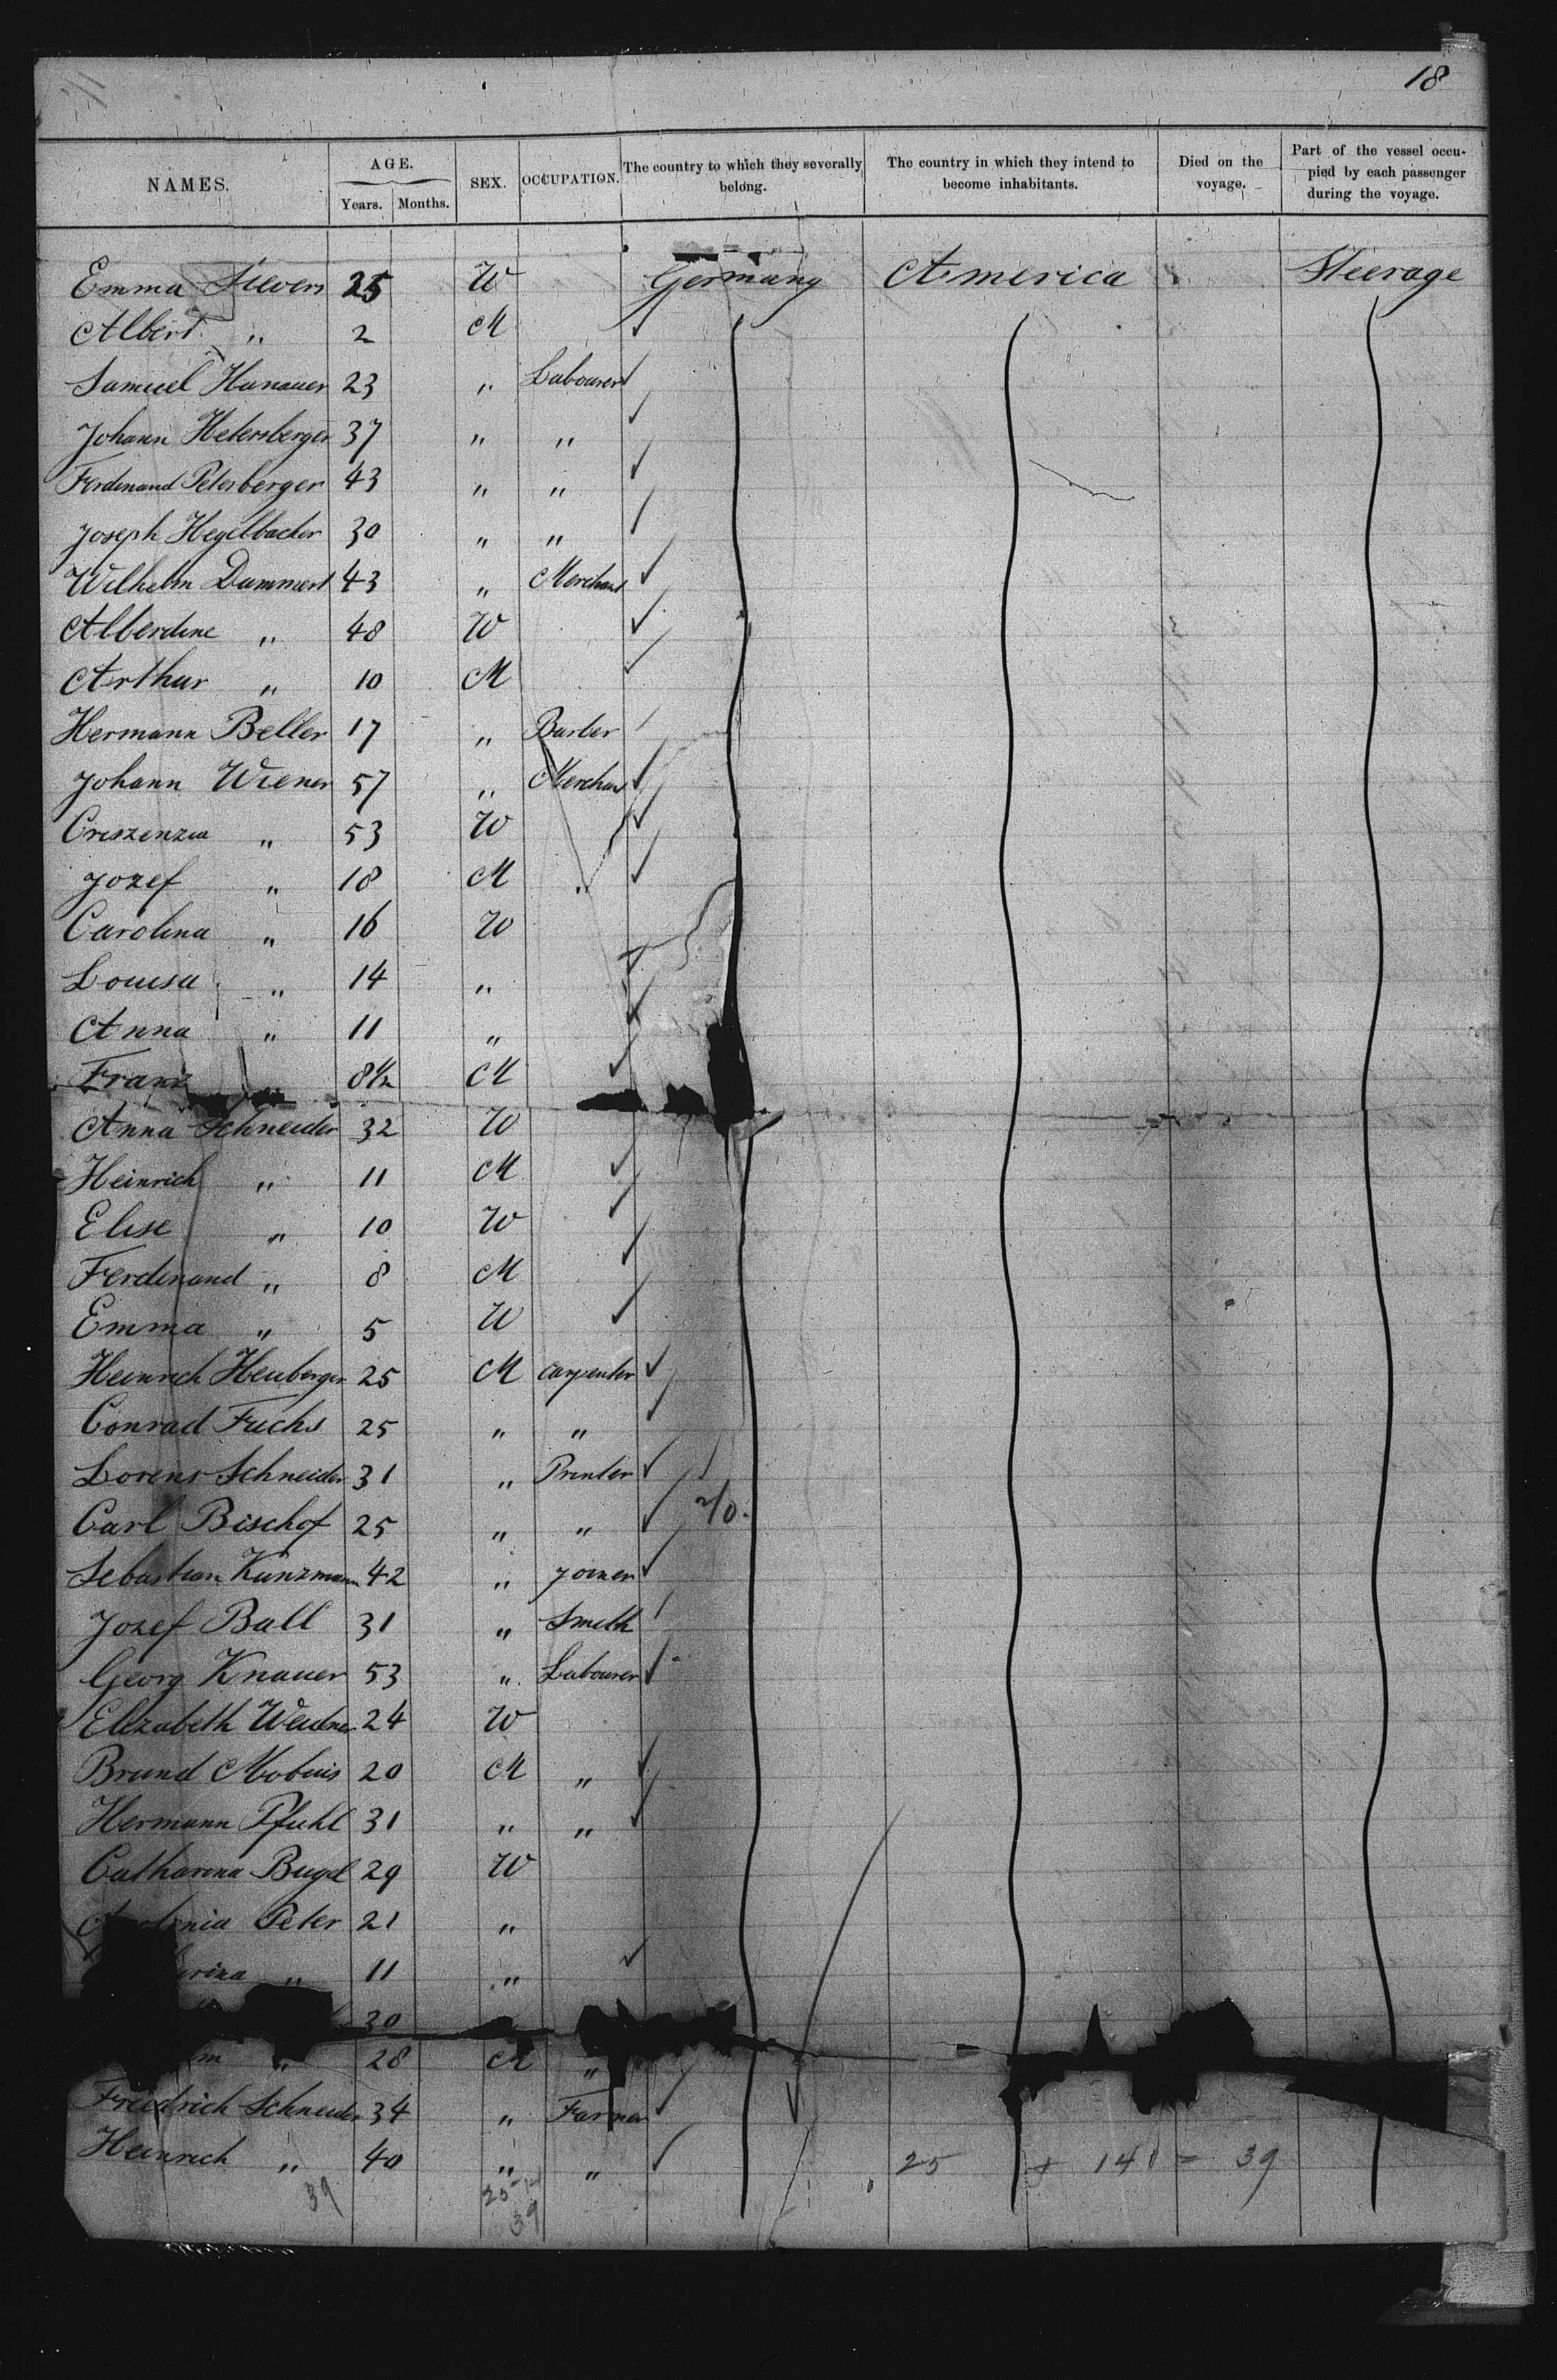 18
NAMES. AGE. Years. Months. SEX. OCCUPATION. The country to which they severally belong. The country in which they intend to become inhabitants. Died on the voyage. Part of the vessel occupied by each passenger during the voyage.
Emma Sievers 25 W Germany America Steerage
Albert " 2 M
Samuel Hanauer 23 " Labourer
Johann Hetersberger 37 " "
Ferdinand Petersberger 43 " "
Joseph Hegelbacher 30 " "
Wilhelm Dammert 43 " Merchant
Alberdine " 48 W
Arthur " 10 M
Hermann Beller 17 " Barber
Johann Wiener 57 " Merchant
Creszenzia " 53 W
Jozef " 18 M "
Carolina " 16 W
Louisa " 14 "
Anna " 11 "
Franz " 8 1/2 M
Anna Schneider 32 W
Heinrich " 11 M
Elise " 10 W
Ferdinand " 8 M
Emma " 5 W
Heinrich Heuberger 25 M Carpenter
Conrad Fuchs 25 " "
Lorens Schneider 31 " Printer
Carl Bischof 25 " "
Sebastian Kunzmann 42 " Joiner
Jozef Ball 31 " Smith
Georg Knauer 53 " Labourer
Elizabeth Weidner 24 W
Brund Mobius 20 M "
Hermann Pfuhl 31 " "
Catharina Bugel 29 W
Peter 21 "
" 11 "
30
" 28 M "
Friedrich Schneider 34 " Farmer
Heinrich " 40 " "
25 + 14 = 39
39
39